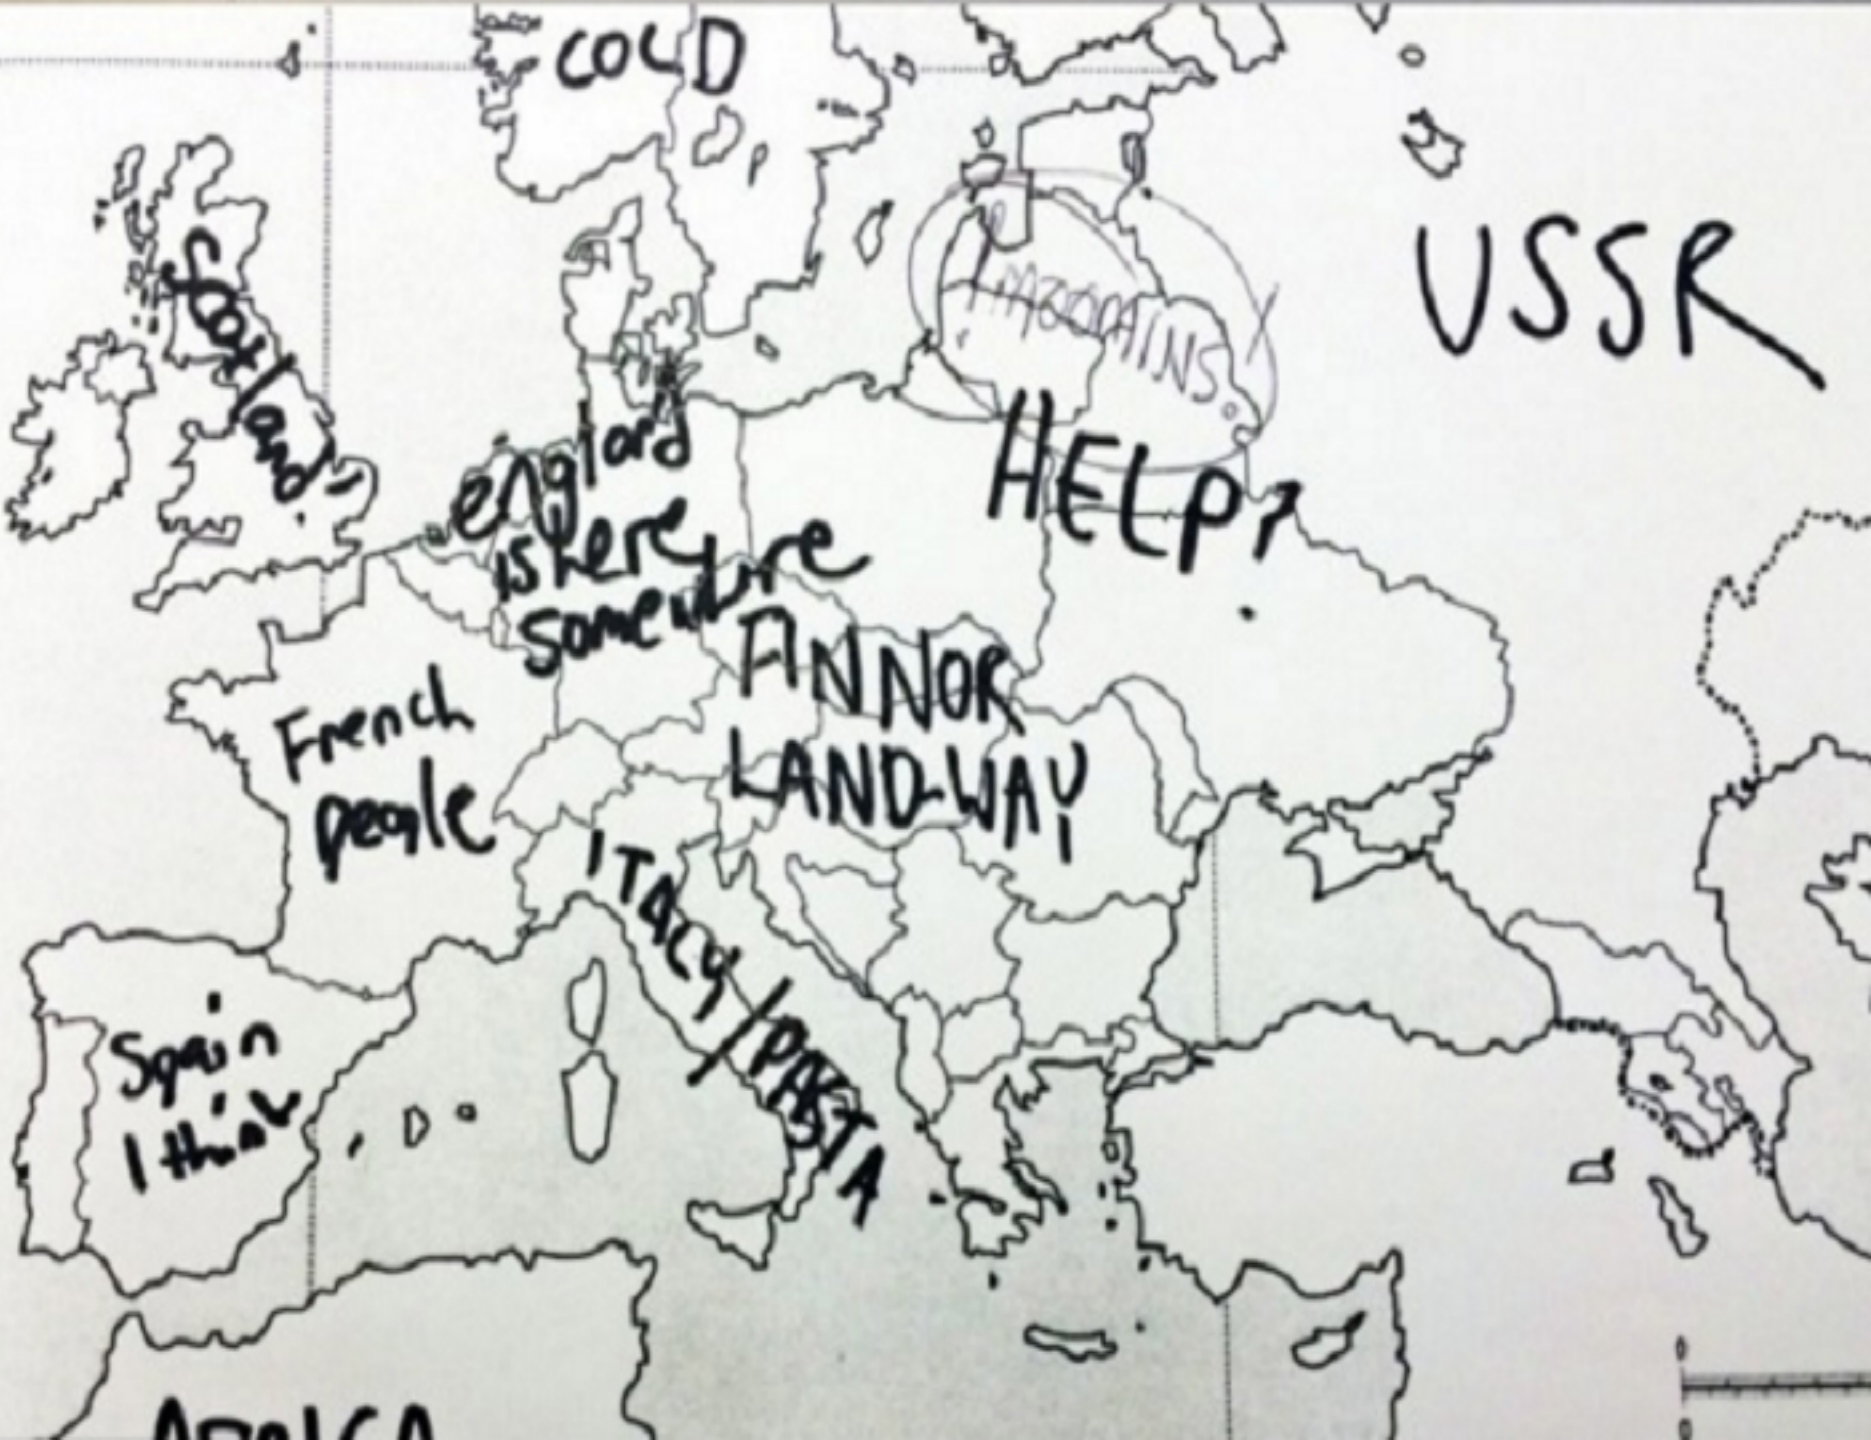 COLD
USSR
Scotland
AMAZONINS.
HELP?
england
is here
somewhere
ANNOR
LAND-WAY
French
people
ITALY/PASTA
Spain
I think
AFRICA